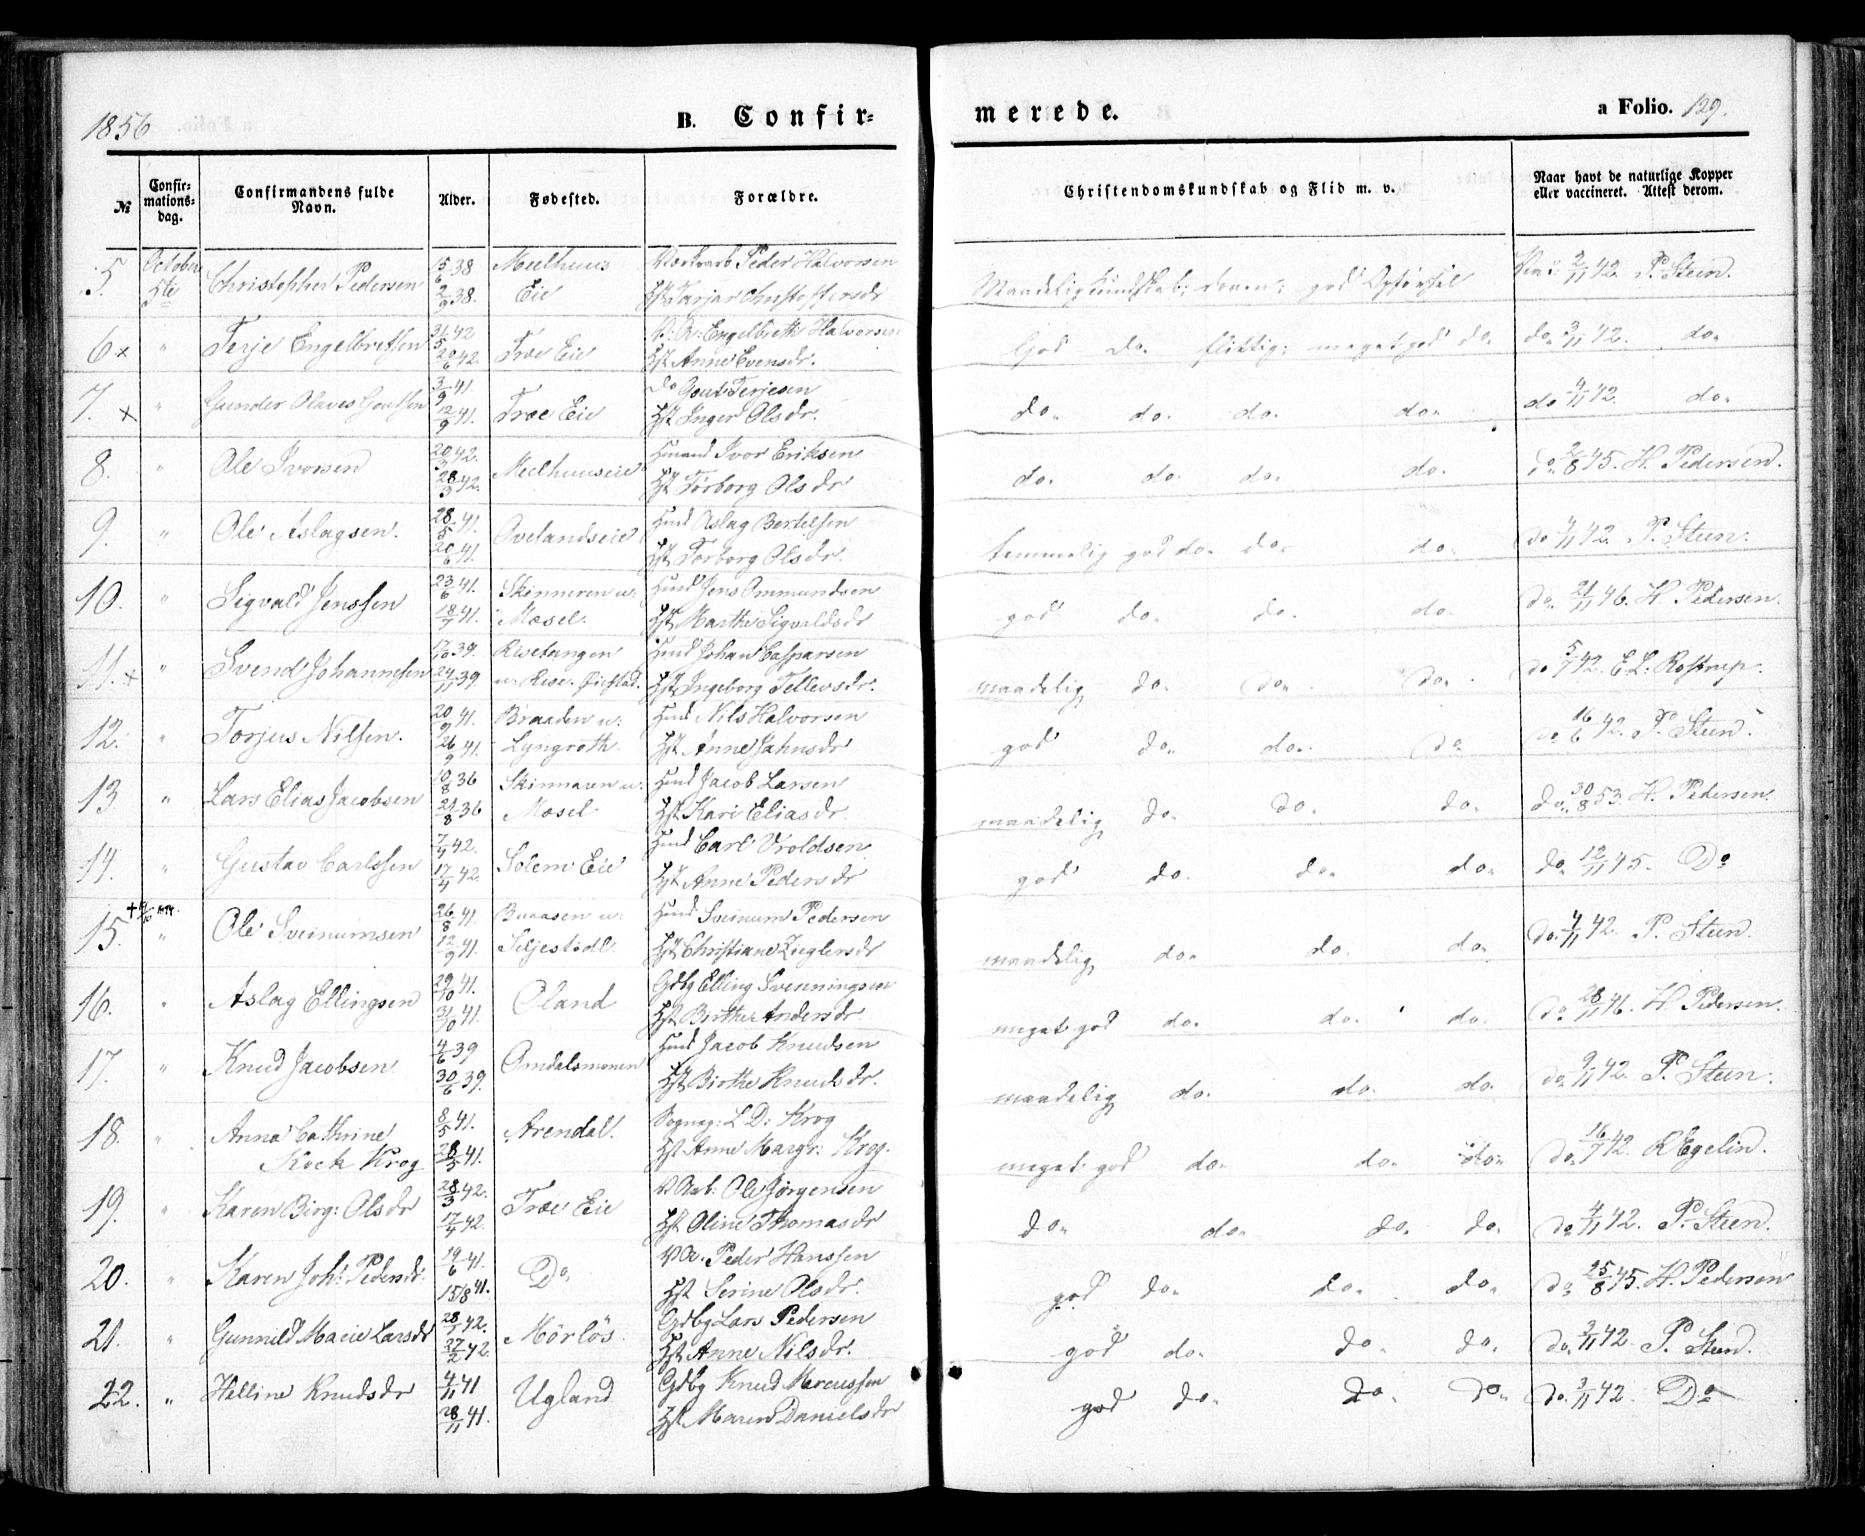 1856 B. Confirmerede. a Folio. 129.
№ Confirmationsdag. Confirmandens fulde Navn. Alder. Fødested. Forældre. Christendomskundskab og Flid m. v. Naar havt de naturlige Kopper eller vaccineret. Attest derom.
5. October 5te Christopher Pedersen 38 Meelhuus Peder Halvorsen
2/7 38. Eie Hst Tarjar Christoffersdr Maadelig Kundskab; god Opførsel 2/11 42. P. Steen.
6 x " Terje Engelbretsen 31/5 42 Træ Eie V. A: Engelbreth Halvorsen
20/6 42. Hst Anne Evensdr. God do. flittig; meget god do do 3/11 42. do.
7. x " Gunder Olaves Goutsen 3/9 41. Træ Eie Do Gout Terjesen
12/9 41. Hst Inger Olsdr. do. do. do. do. do 4/11 42. do.
8. " Ole Ivorsen 20/3 42. Meelhuuseie Huusmand Ivor Eriksen
28/3 42. Hst Torborg Olsdr do. do. do. do. do. 2/8 45. H. Pedersen.
9. " Ole Aslagsen. 28/5 41. Ovelandseie Huusmd Aslag Bertelsen
20/6 41. Hst Torborg Olsdr. temmelig god do. do. do. do 4/11 42. P. Steen.
10. " Sigvald Jenssen 23/6 41. Skinneren u: Huusmd Jens Ommundsen
18/7 41. Mæsel. Hst Marthe Sigvaldsdr god do. do. do. do. 21/11 46. H. Pedersen.
11. x " Svend Johannesen 17/10 39. Risetangen Huusmd Johan Casparsen
24/11 39. u. Rise. Øiestad. Hst Ingeborg Tellevsdr. maadelig do. do. do. do 5/7 42. E. L. Rostrup.
12. " Torjus Nilsen. 20/9 41. Braaden u: Huusmd Nils Halvorsen
26/9 41. Lyngroth. Hst Anne Jahnsdr god do. do. do do 16/6 42. P. Steen.
13. " Lars Elias Jacobsen 10/8 36 Skinnaren u: Huusmd Jacob Larsen
21/8 36 Mæsel. Hst Kari Eliasdr. maadelig do. do. do. do. 30/8 53. H. Pedersen.
14. " Gustav Carlssen 7/4 42. Solem Eie Huusmd Carl Vroldsen
17/4 42. Hst Anne Pedersdr god do. do. do. do. 12/11 45. Do
15. " Ole Sveinumsen 26/8 41. Buaasen u: Huusmd Sveinum Pedersen
12/9 41. Seljestødl. Hst Christiane Zieglersdr maadelig do. do. do. do. 4/11 42. P. Steen.
16. " Aslag Ellingsen 29/10 41. Øland Gdbg Elling Svenningsen
31/10 41. Hst Birthe Andersdr meget god do. do. do. do. 28/11 46. H. Pedersen.
17. " Knud Jacobsen 4/6 39 Omdalsmoen Huusmd Jacob Knudsen
30/6 39. Hst Birthe Knudsdr. maadelig do. do. do. do. 9/11 42. P. Steen.
18. " Anna Cathrine 8/5 41. Arendal. Sognep: L. D: Krog
Kock Krog 28/5 41. Hst Anne Margr: Krog. meget god do. do. do. do. 16/7 42. Egelin.
19. " Karen Birg: Olsdr 28/3 42. Træ Eie V Arb: Ole Jørgensen
17/4 42. Hst Oline Thomasdr do. do. do. do. do. 4/11 42. P. Steen.
20. " Karen Joh: Pedersdr. 19/6 41. Do V A. Peder Hanssen
15/8 41. Hst Serine Olsdr. god do. do. do. do. 25/8 45. H. Pedersen
21. " Gunnild Marie Larsdr 28/1 42. Mørløs. Gdbg Lars Pedersen
27/2 42. Hst Anne Nilsdr. god do. do. do. do. 3/11 42. P. Steen.
22. " Helline Knudsdr 4/11 41 Ugland Gdbg Knud Marcussen
28/11 41. Hst Maren Danielsdr god do. do. do. do. 3/11 42. Do